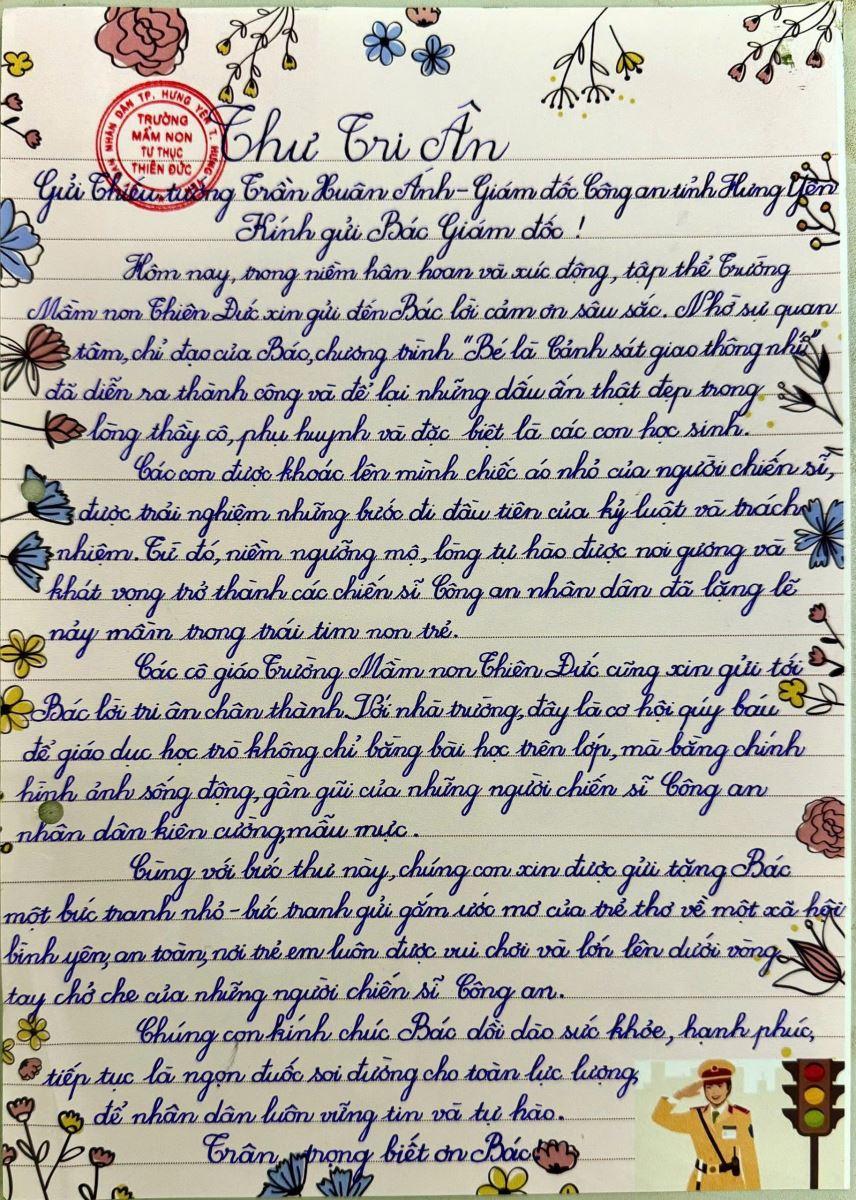 ỦY BAN NHÂN DÂN TP. HƯNG YÊN T. HƯNG YÊN
TRƯỜNG
MẦM NON
TƯ THỤC
THIÊN ĐỨC
Thư Tri Ân
Gửi Thiếu tướng Trần Xuân Ánh - Giám đốc Công an tỉnh Hưng Yên
Kính gửi Bác Giám đốc !
Hôm nay, trong niềm hân hoan và xúc động, tập thể Trường
Mầm non Thiên Đức xin gửi đến Bác lời cảm ơn sâu sắc. Nhờ sự quan
tâm, chỉ đạo của Bác, chương trình "Bé là Cảnh sát giao thông nhí"
đã diễn ra thành công và để lại những dấu ấn thật đẹp trong
lòng thầy cô, phụ huynh và đặc biệt là các con học sinh.
Các con được khoác lên mình chiếc áo nhỏ của người chiến sĩ,
được trải nghiệm những bước đi đầu tiên của kỷ luật và trách
nhiệm. Từ đó, niềm ngưỡng mộ, lòng tự hào được noi gương và
khát vọng trở thành các chiến sĩ Công an nhân dân đã lặng lẽ
nảy mầm trong trái tim non trẻ.
Các cô giáo Trường Mầm non Thiên Đức cũng xin gửi tới
Bác lời tri ân chân thành. Với nhà trường, đây là cơ hội qúy báu
để giáo dục học trò không chỉ bằng bài học trên lớp, mà bằng chính
hình ảnh sống động, gần gũi của những người chiến sĩ Công an
nhân dân kiên cường, mẫu mực.
Cùng với bức thư này, chúng con xin được gửi tặng Bác
một bức tranh nhỏ - bức tranh gửi gắm ước mơ của trẻ thơ về một xã hội
bình yên, an toàn, nơi trẻ em luôn được vui chơi và lớn lên dưới vòng
tay chở che của những người chiến sĩ Công an.
Chúng con kính chúc Bác dồi dào sức khỏe, hạnh phúc,
tiếp tục là ngọn đuốc soi đường cho toàn lực lượng,
để nhân dân luôn vững tin và tự hào.
Trân trọng biết ơn Bác!